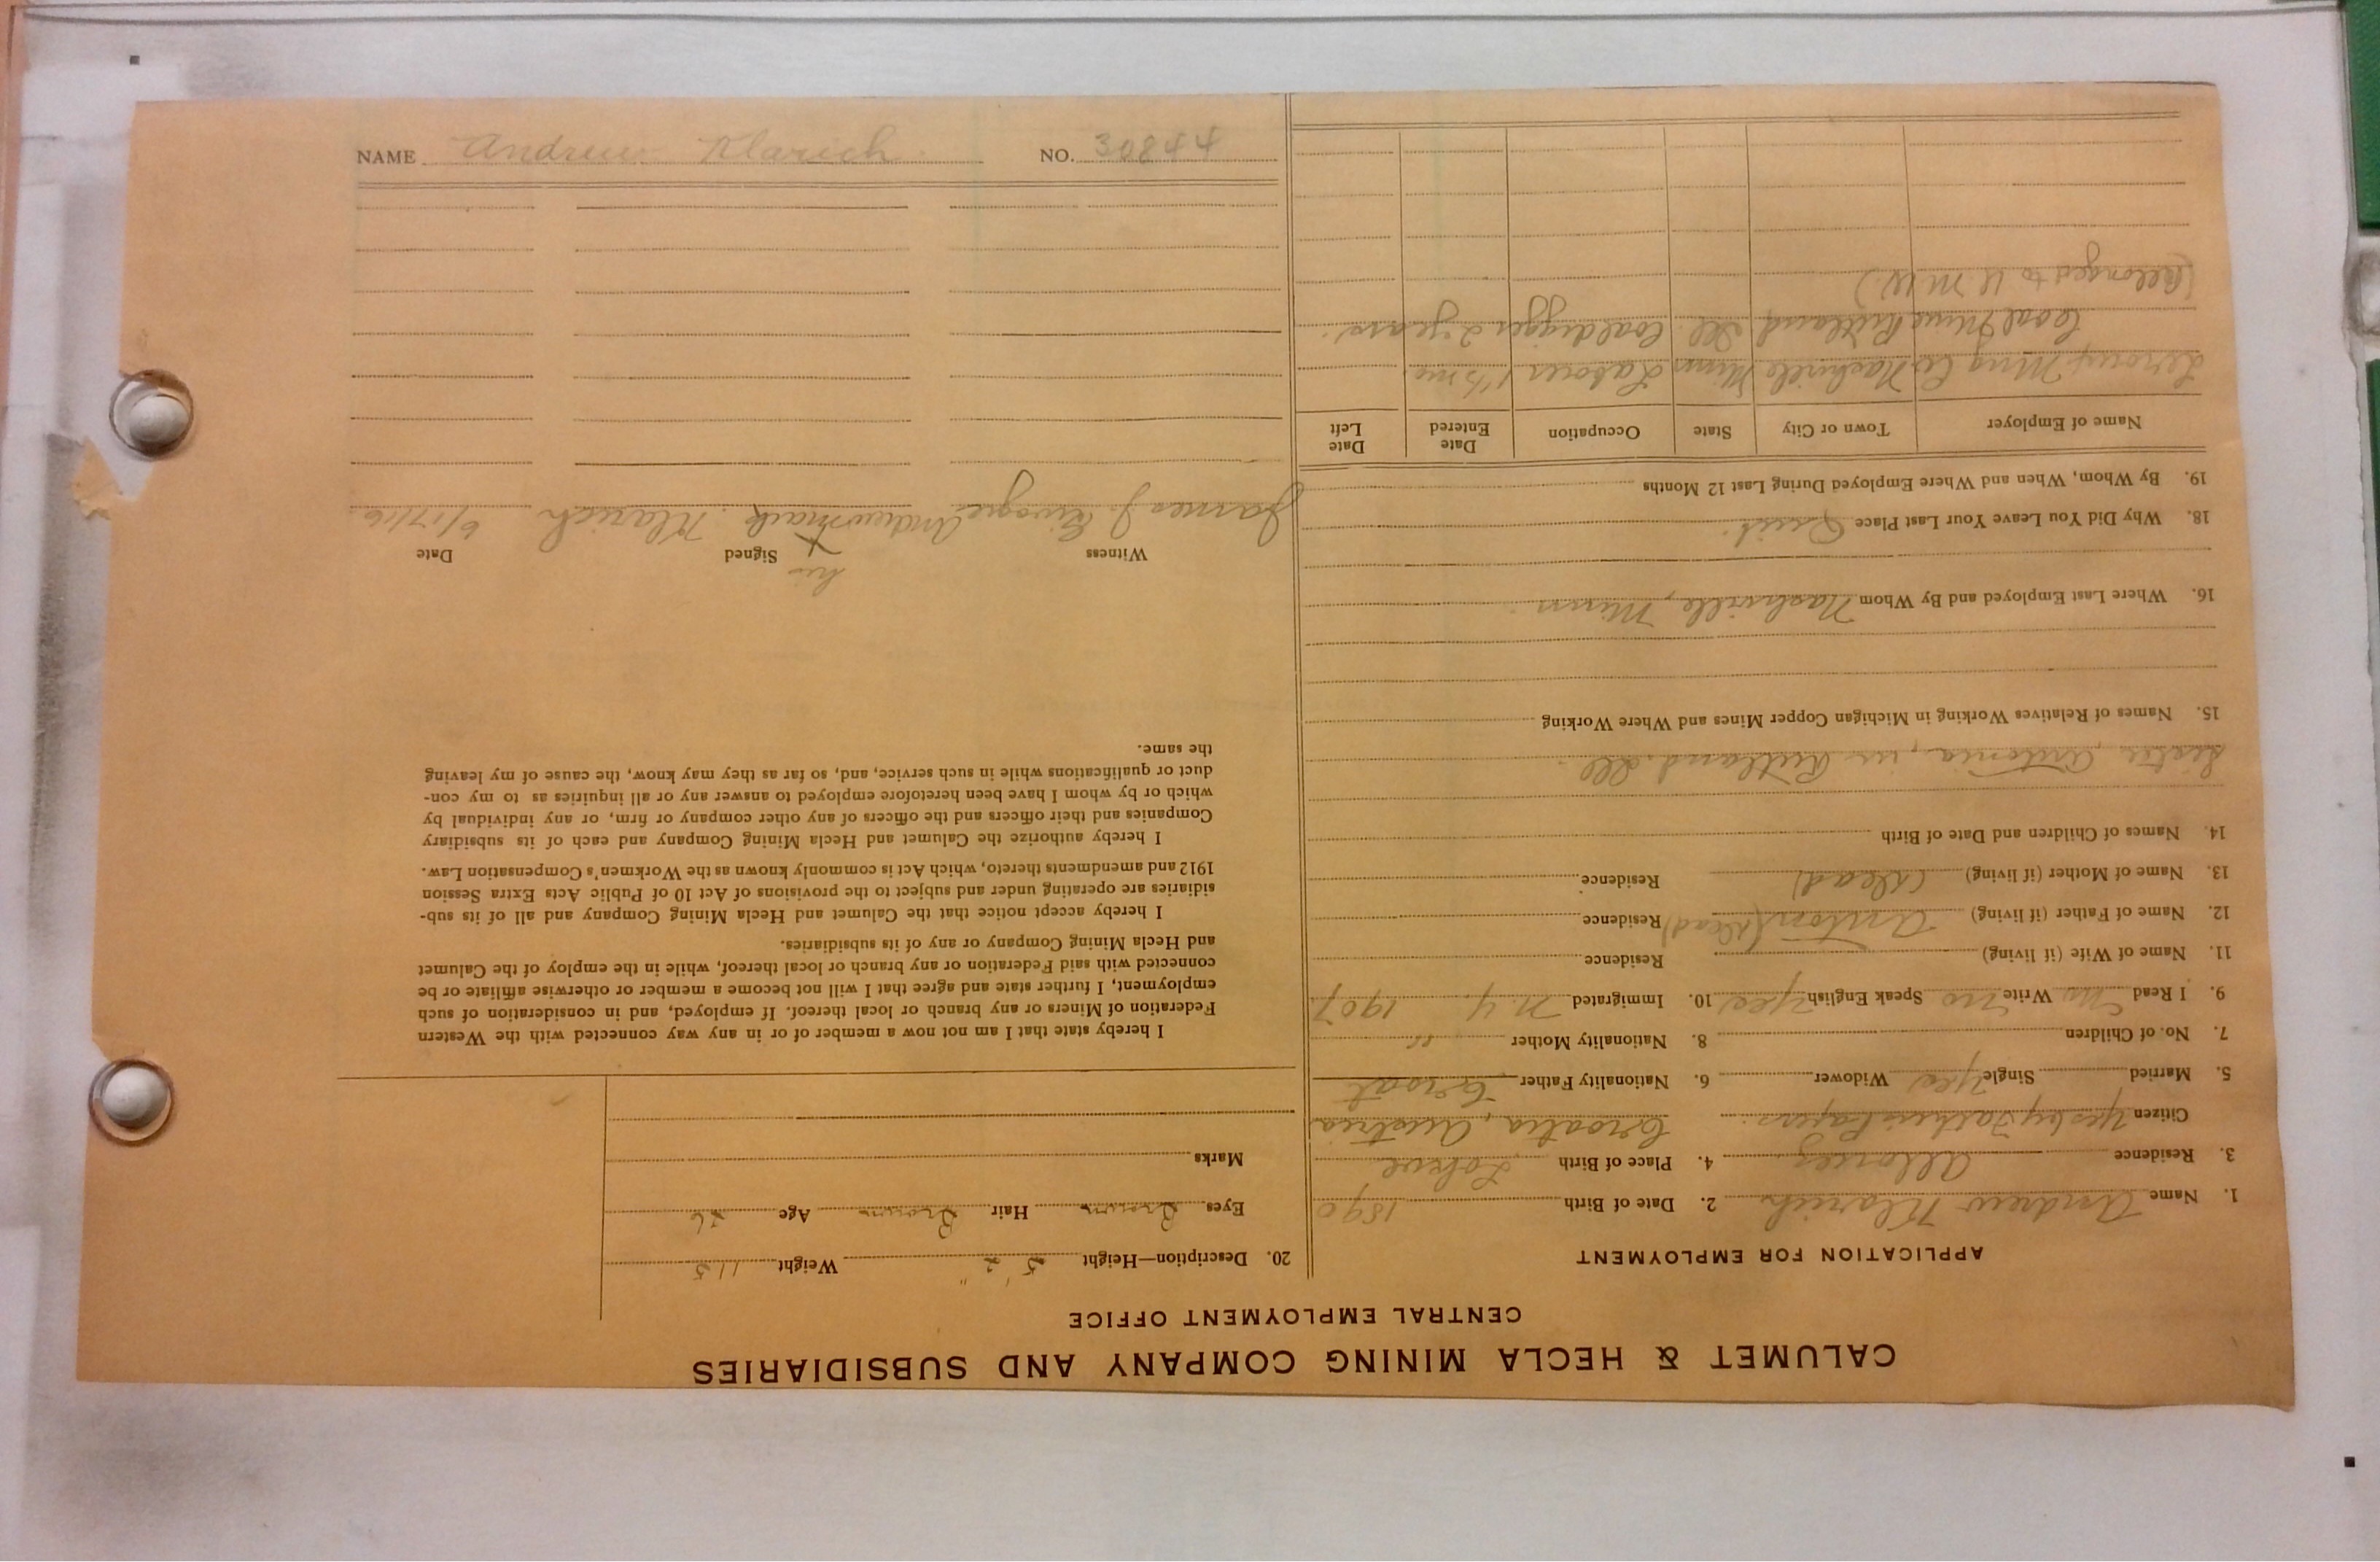 CALUMET & HECLA MINING COMPANY AND SUBSIDIARIES
CENTRAL EMPLOYMENT OFFICE
APPLICATION FOR EMPLOYMENT
1. Name Andrew Klarich 2. Date of Birth 1890
3. Residence Allouez 4. Place of Birth Lokve
Citizen Yes by Fathers Papers. Croatia, Austria
5. Married Single Yes Widower 6. Nationality Father Croat
7. No. of Children 8. Nationality Mother "
9. I Read Write no Speak English Yes 10. Immigrated N.Y. 1907
11. Name of Wife (if living) Residence
12. Name of Father (if living) Anton (dead) Residence
13. Name of Mother (if living) (dead) Residence
14. Names of Children and Date of Birth
Sister, Antonia, in Rutland. Ill.
15. Names of Relatives Working in Michigan Copper Mines and Where Working
16. Where Last Employed and By Whom Nashville, Minn.
18. Why Did You Leave Your Last Place Quit.
19. By Whom, When and Where Employed During Last 12 Months
Name of Employer Town or City State Occupation Date Entered Date Left
Mng Co Nashville Minn Laborer
Coal Mine Rutland Ill. Coal digger 2 years.
(Belonged to U.M.W.)
20. Description—Height 5' 2" Weight 115
Eyes Brown Hair Brown Age 26
Marks
I hereby state that I am not now a member of or in any way connected with the Western
Federation of Miners or any branch or local thereof. If employed, and in consideration of such
employment, I further state and agree that I will not become a member or otherwise affiliate or be
connected with said Federation or any branch or local thereof, while in the employ of the Calumet
and Hecla Mining Company or any of its subsidiaries.
I hereby accept notice that the Calumet and Hecla Mining Company and all of its sub-
sidiaries are operating under and subject to the provisions of Act 10 of Public Acts Extra Session
1912 and amendments thereto, which Act is commonly known as the Workmen's Compensation Law.
I hereby authorize the Calumet and Hecla Mining Company and each of its subsidiary
Companies and their officers and the officers of any other company or firm, or any individual by
which or by whom I have been heretofore employed to answer any or all inquiries as to my con-
duct or qualifications while in such service, and, so far as they may know, the cause of my leaving
the same.
his
Witness Signed Date
James J. Andrew X mark Klarich 6/17/16.
NAME Andrew Klarich. NO. 30844